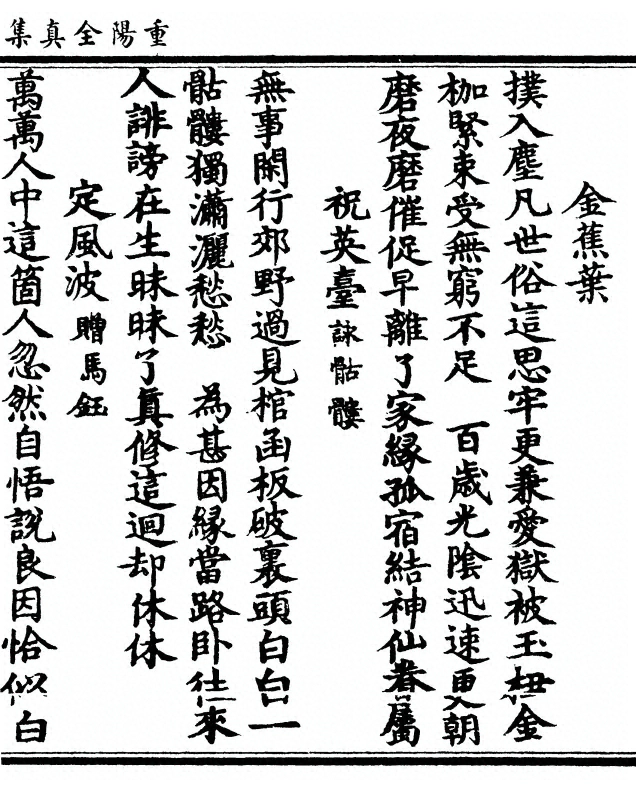 重陽全真集
金蕉葉
撲入塵凡世俗這思牢更兼愛獄被玉杻金
枷緊束受無窮不足　百歲光陰迅速更朝
磨夜磨催促早離了家緣孤宿結神仙眷屬
祝英臺詠骷髏
無事閑行郊野過見棺函板破裏頭白白一
骷髏獨瀟灑愁愁　為甚因緣當路卧往來
人誹謗在生昧昧了真修這迴却休休
定風波贈馬鈺
萬萬人中這箇人忽然自悟說良因恰似白